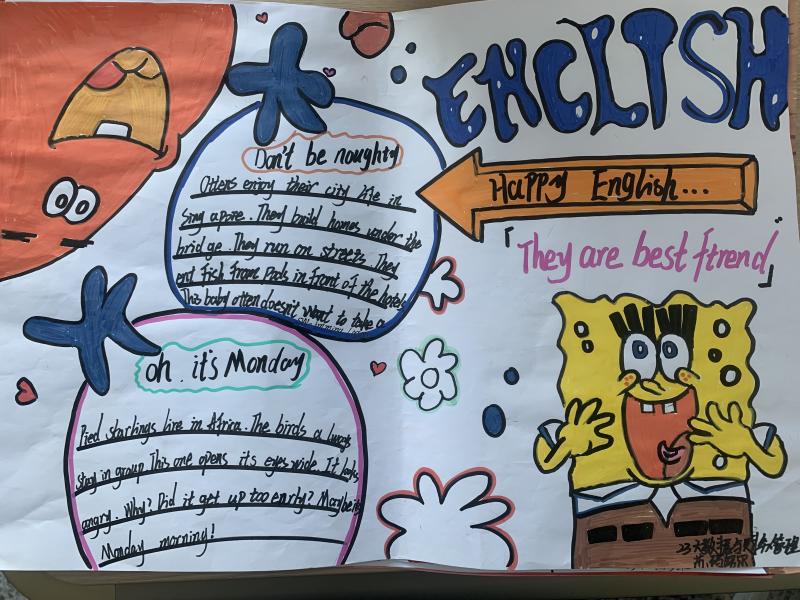 ENGLISH
Happy English...
「They are best ftrend」
Don't be noughty
Otters enjoy their city life in
Singapore. They build homes under the
bridge. They run on streets. They
eat fish from Pods in front of the hotels
This baby otten doesn't want to take a
oh. it's Monday
Pied starlings live in Africa. The birds a lways
stay in group This one opens its eyes wide. It looks
angry. Why? Did it get up too enrly? Maybe it's
Monday morning!
23大数据与